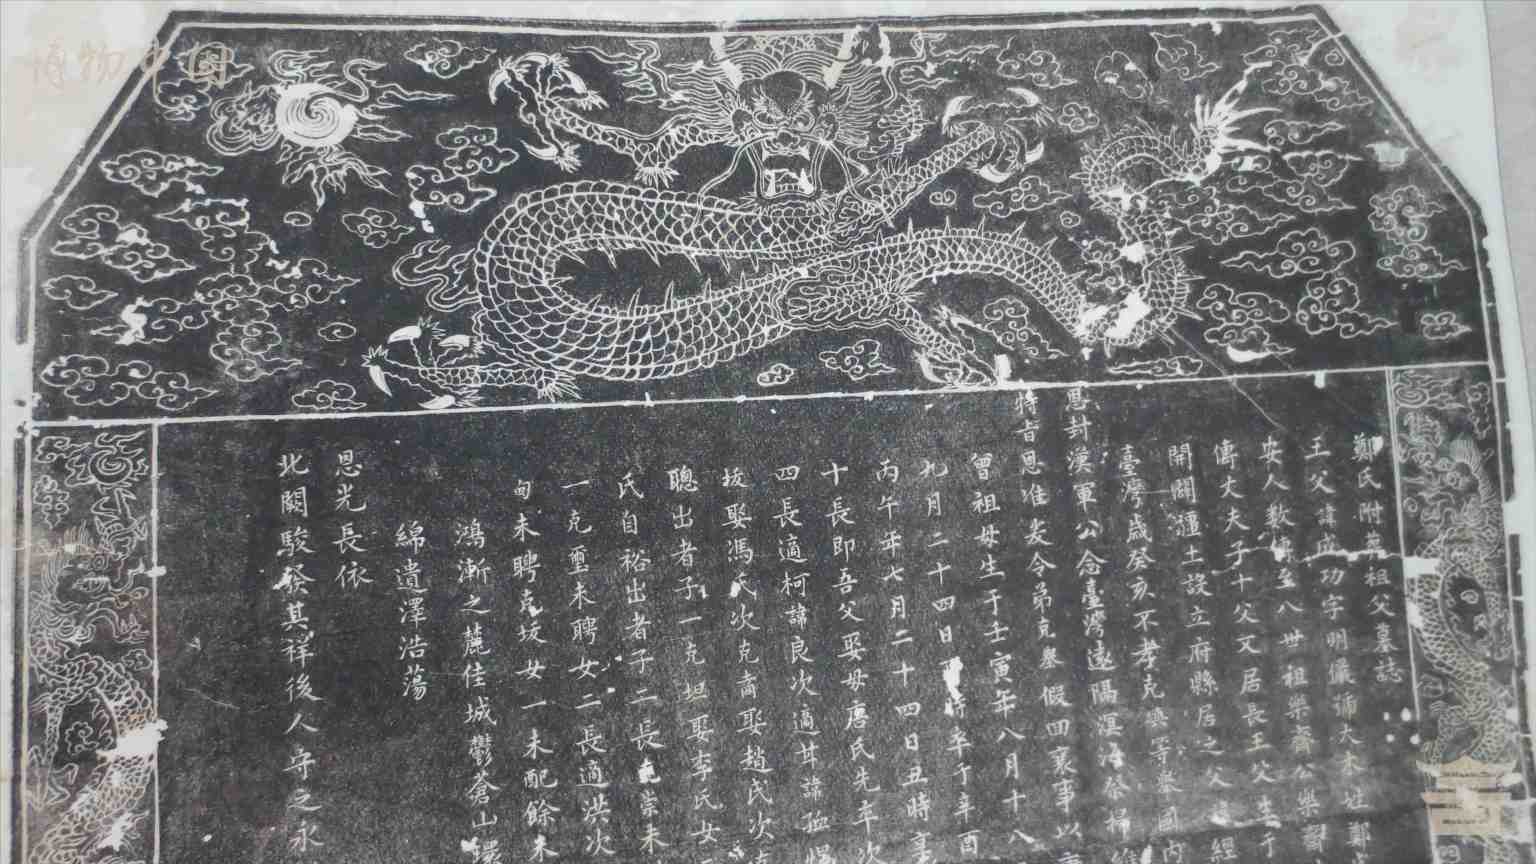 博物中国
鄭氏附葬祖父墓誌
王父諱成功字明儼
安人數傳至八世祖樂齋公樂
傳丈夫子十父又居長王父生于
開闢疆土設立府縣居之父
臺灣歲癸亥不孝克㙺等舉國內
恩封漢軍公念臺灣遠隔溟海祭掃維
特旨恩准爰令弟克舉假回襄事以
曾祖母生于壬寅年八月十八
九月二十四日 時卒于辛酉
丙午年七月二十四日丑時
十長即吾父娶母唐氏先卒次
四長適柯諱良次適甘諱孟
拔娶馮氏次克商娶趙氏次
聰出者子一克坦娶李氏女
氏自裕出者子二長克崇未
一克璽未聘女二長適洪次
甸未聘克垵女一未配餘未
鴻漸之麓佳城鬱蒼山環
綿遺澤浩蕩
恩光長依
北闕駿發其祥後人守之永